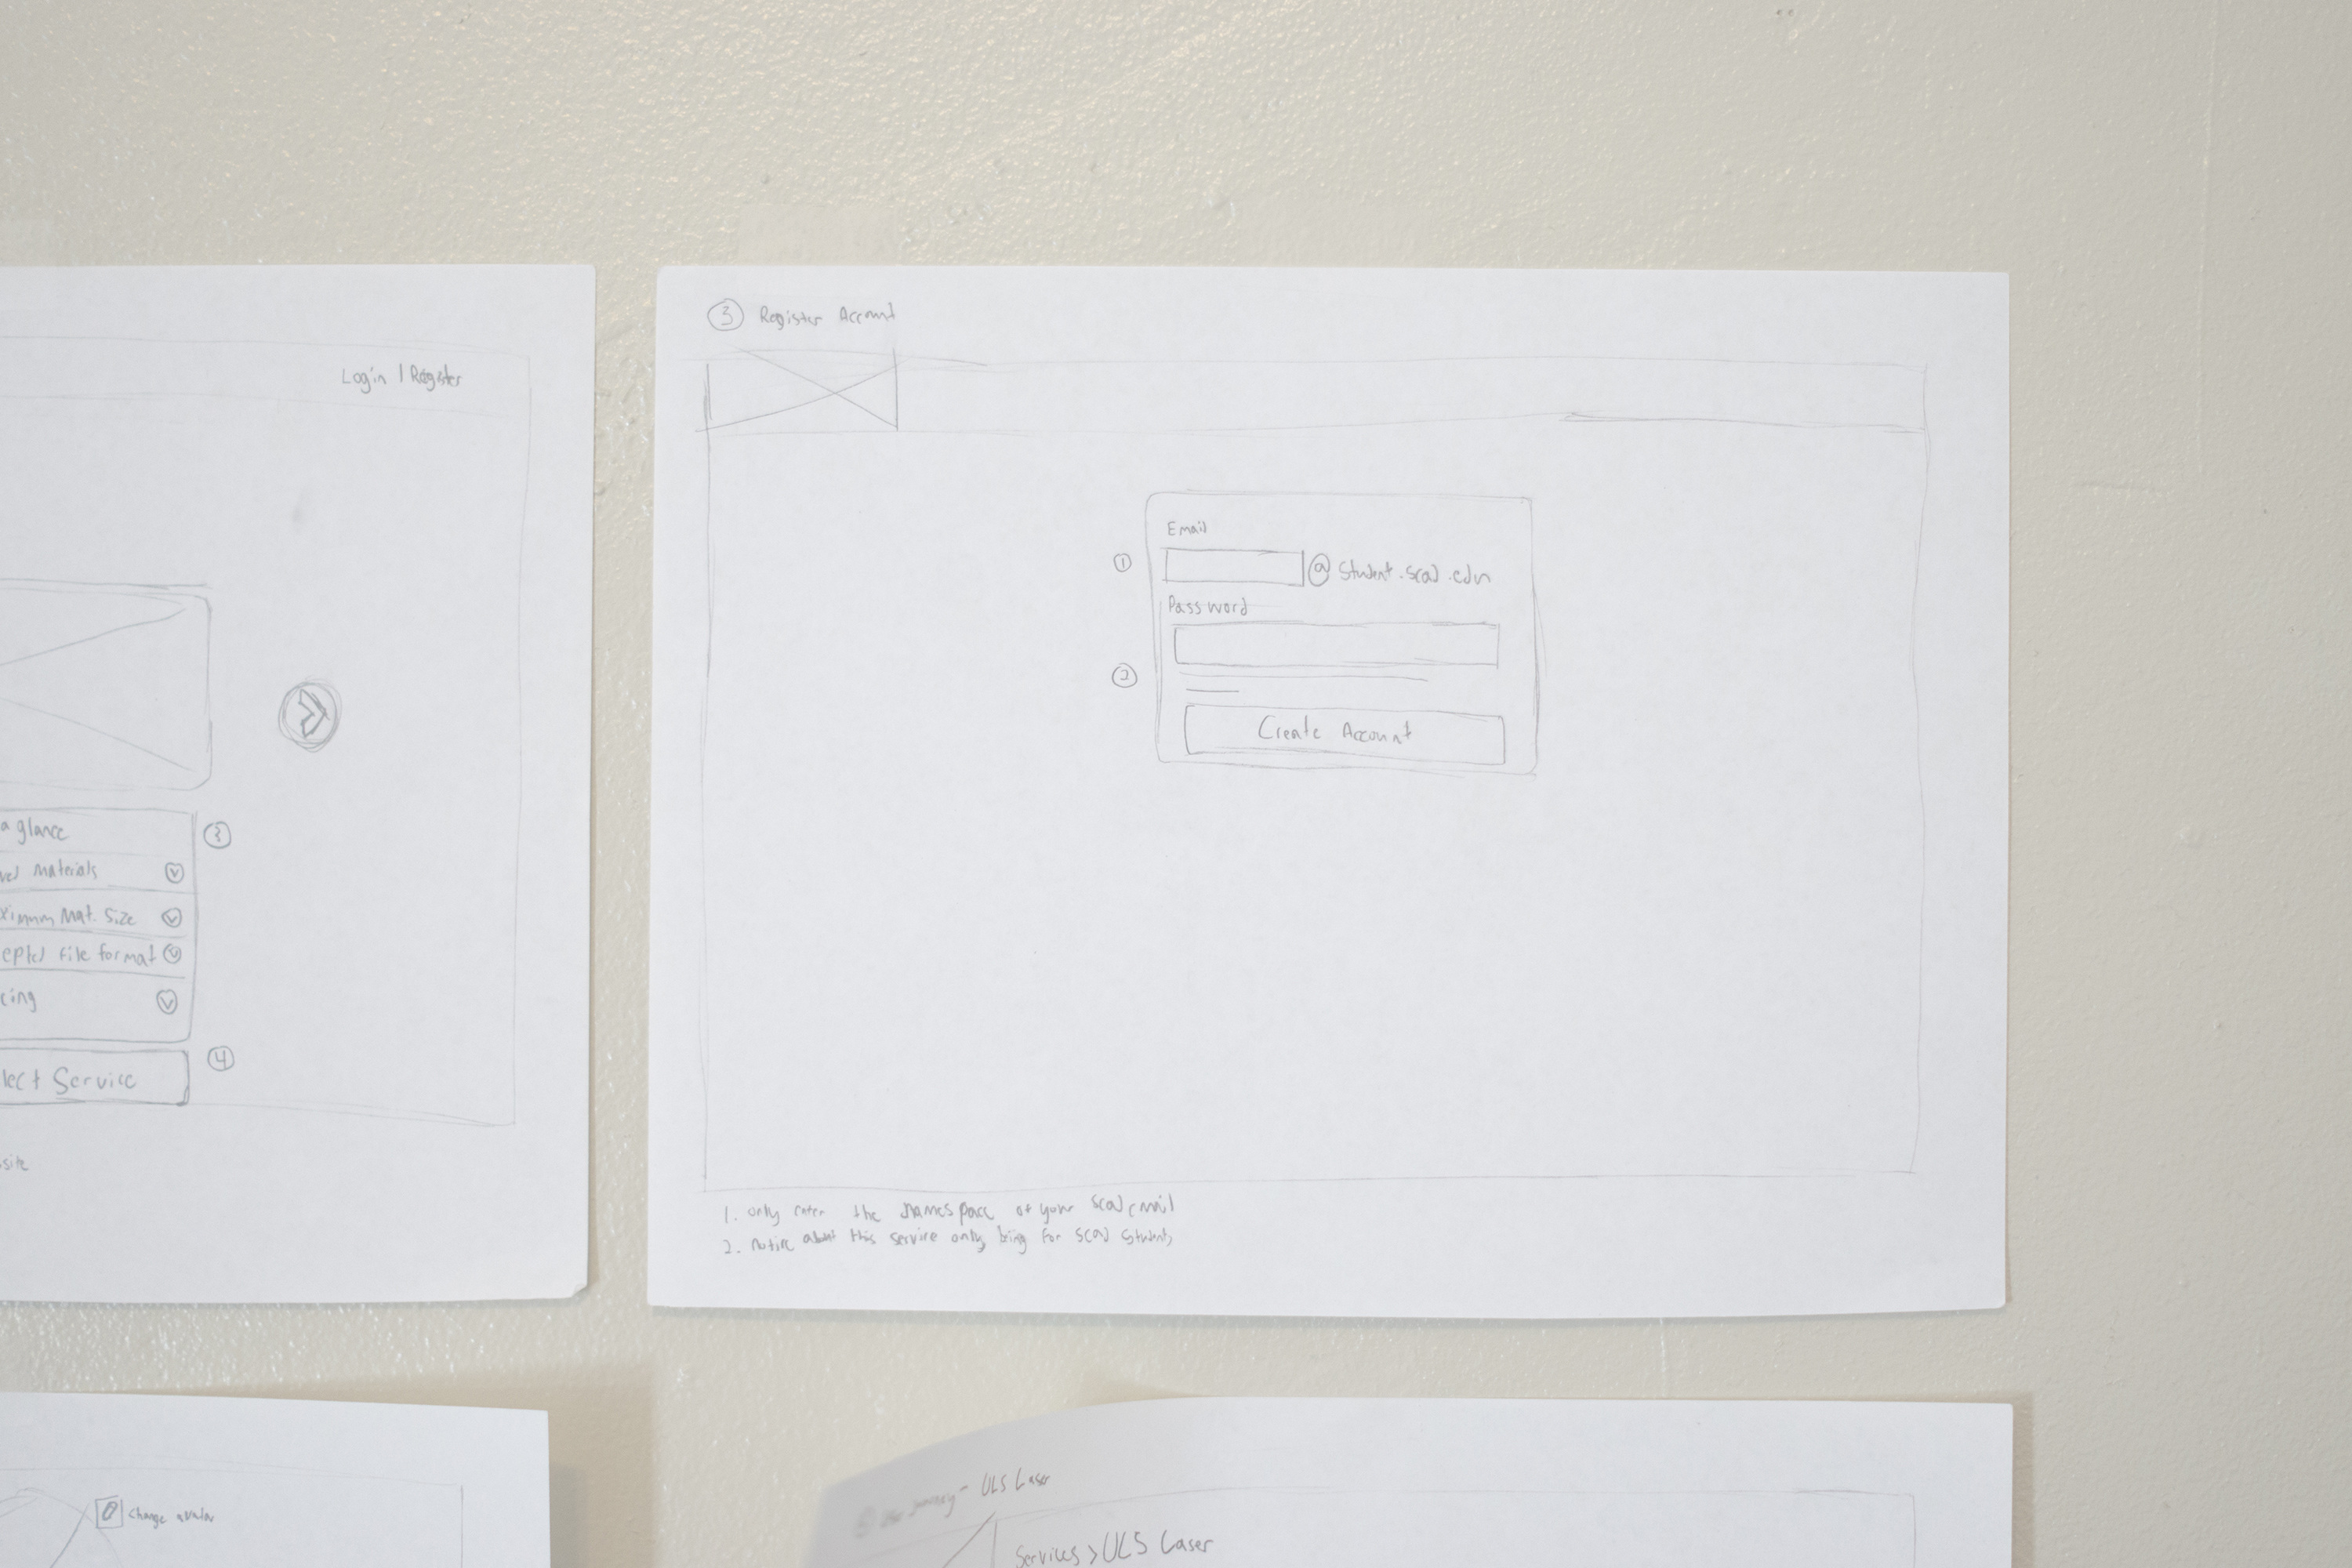 Login | Register
a glance
Materials
ximum Mat. Size
epted file format
cing
lect Service
site
3
4
3 Register Account
Email
1
@ student.scad.edu
Password
2
Create Account
1. only enter the namespace of your scad email
2. notice about this service only being for scad students
Change avatar
- ULS Laser
Services > ULS Laser